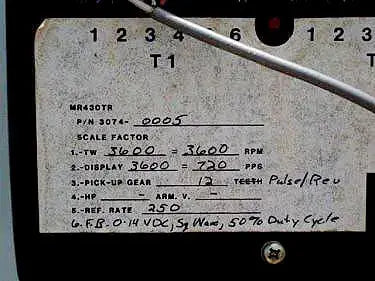 1 2 3 4 6 1 2
T1 T
MR430TR
P/N 3074- 0005
SCALE FACTOR
1.-TW 3600 = 3600 RPM
2.-DISPLAY 3600 = 720 PPS
3.-PICK-UP GEAR 12 TEETH Pulse/Rev
4.-HP - ARM. V. -
5.-REF. RATE 250
6. F.B. 0-14 VDC, Sq Wave, 50% Duty Cycle